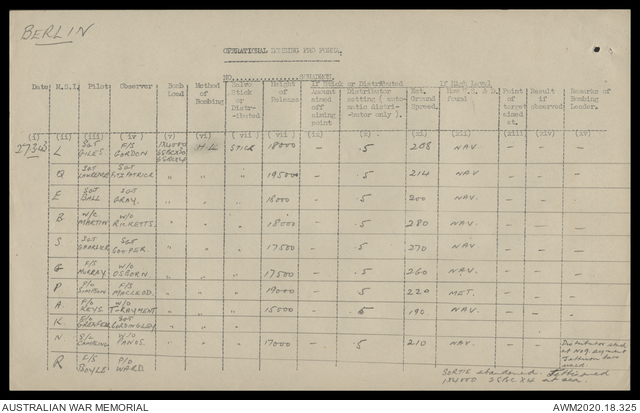 BERLIN
OPERATIONAL BOMBING PRO FORMA.
NO. SQUADRON.
Date M.S.I. Pilot Observer Bomb Load Method of Bombing Salvo Stick or Distr-ibuted Height of Release If Stick or Distributed If High Level Point of target aimed at. Result if observed Remarks of Bombing Leader.
Amount aimed off aiming point Distributor setting (automatic distributor only). Net. Ground Speed. How W.S. & D. found
(i) (ii) (iii) (iv) (v) (vi) (vii) (viii) (ix) (x) (xi) (xii) (xiii) (xiv) (xv)
27343 L SGT GILES F/S GORDON 1X4000 H.L. STICK 18000 — .5 208 NAV. — — —
Q SGT SGT FITZPATRICK " " " 19500 — .5 214 NAV — — —
E SGT BALL SGT GRAY. " " " 18000 — .5 200 NAV — — —
B W/C MARTIN W/O RICKETTS. " " " 18000 — .5 280 NAV. — — —
S SGT SGT COOPER. " " " 17500 — .5 270 NAV — — —
G F/S MURRAY W/O OSBORN. " " " 17500 — .5 260 NAV. — — —
P P/O SIMPSON F/S MACLEOD. " " " 19000 — .5 220 MET. — — —
A F/O KEYS. W/O " " " 15000 — .5 190 NAV. — — —
K F/O SGT CORDINGLEY " " "
N S/L W/O PANOS. " " " 17000 — .5 210 NAV — — Distributor stuck at No 9. segment Jettison bars used.
R F/S BOYLE P/O WARD SORTIE abandoned. Jettisoned
1X4000 2SBC X4 at sea.
AUSTRALIAN WAR MEMORIAL
AWM2020.18.325